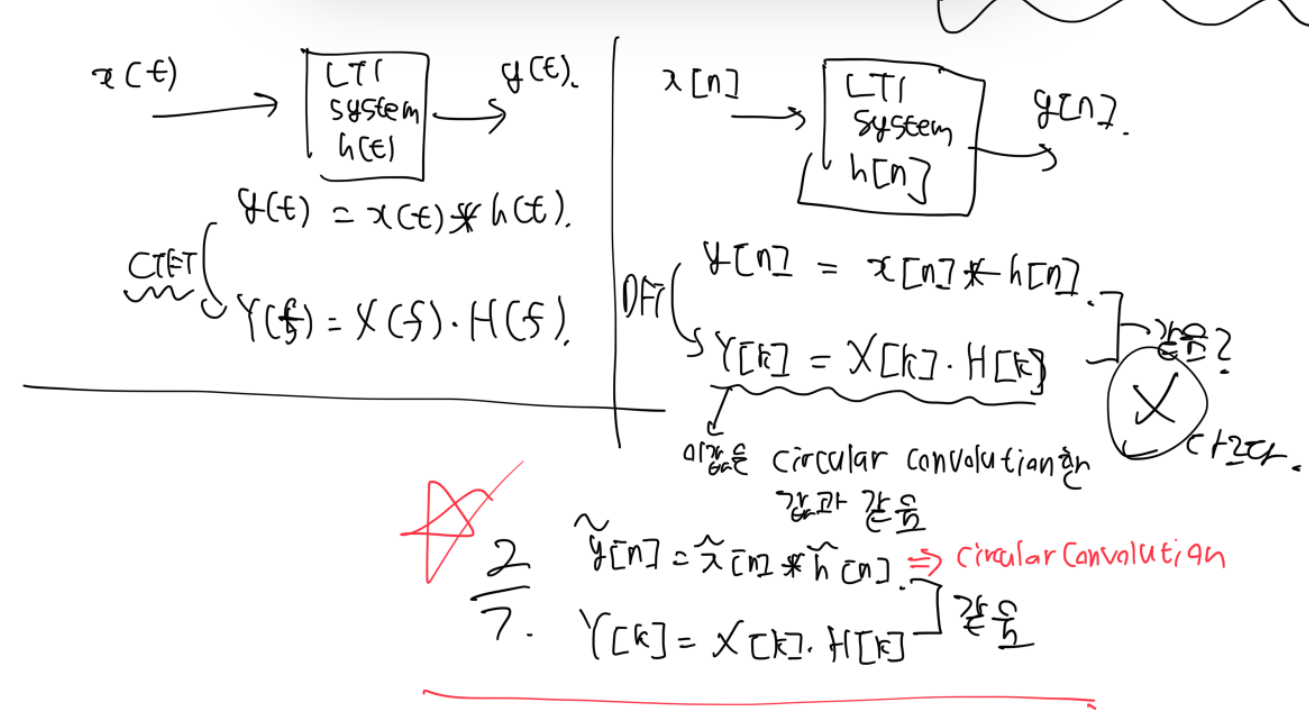 x(t)
LTI
system
h(t)
y(t).
y(t) = x(t) * h(t).
CTFT
Y(f) = X(f) · H(f).
x[n]
LTI
system
h[n]
y[n].
y[n] = x[n] * h[n].
DFT
Y[k] = X[k] · H[k]
같음?
X
다르다.
이 값은 circular convolution한
값과 같음
ỹ[n] = x̃[n] * h̃[n]. ⇒ circular convolution
Y[k] = X[k] · H[k]
같음